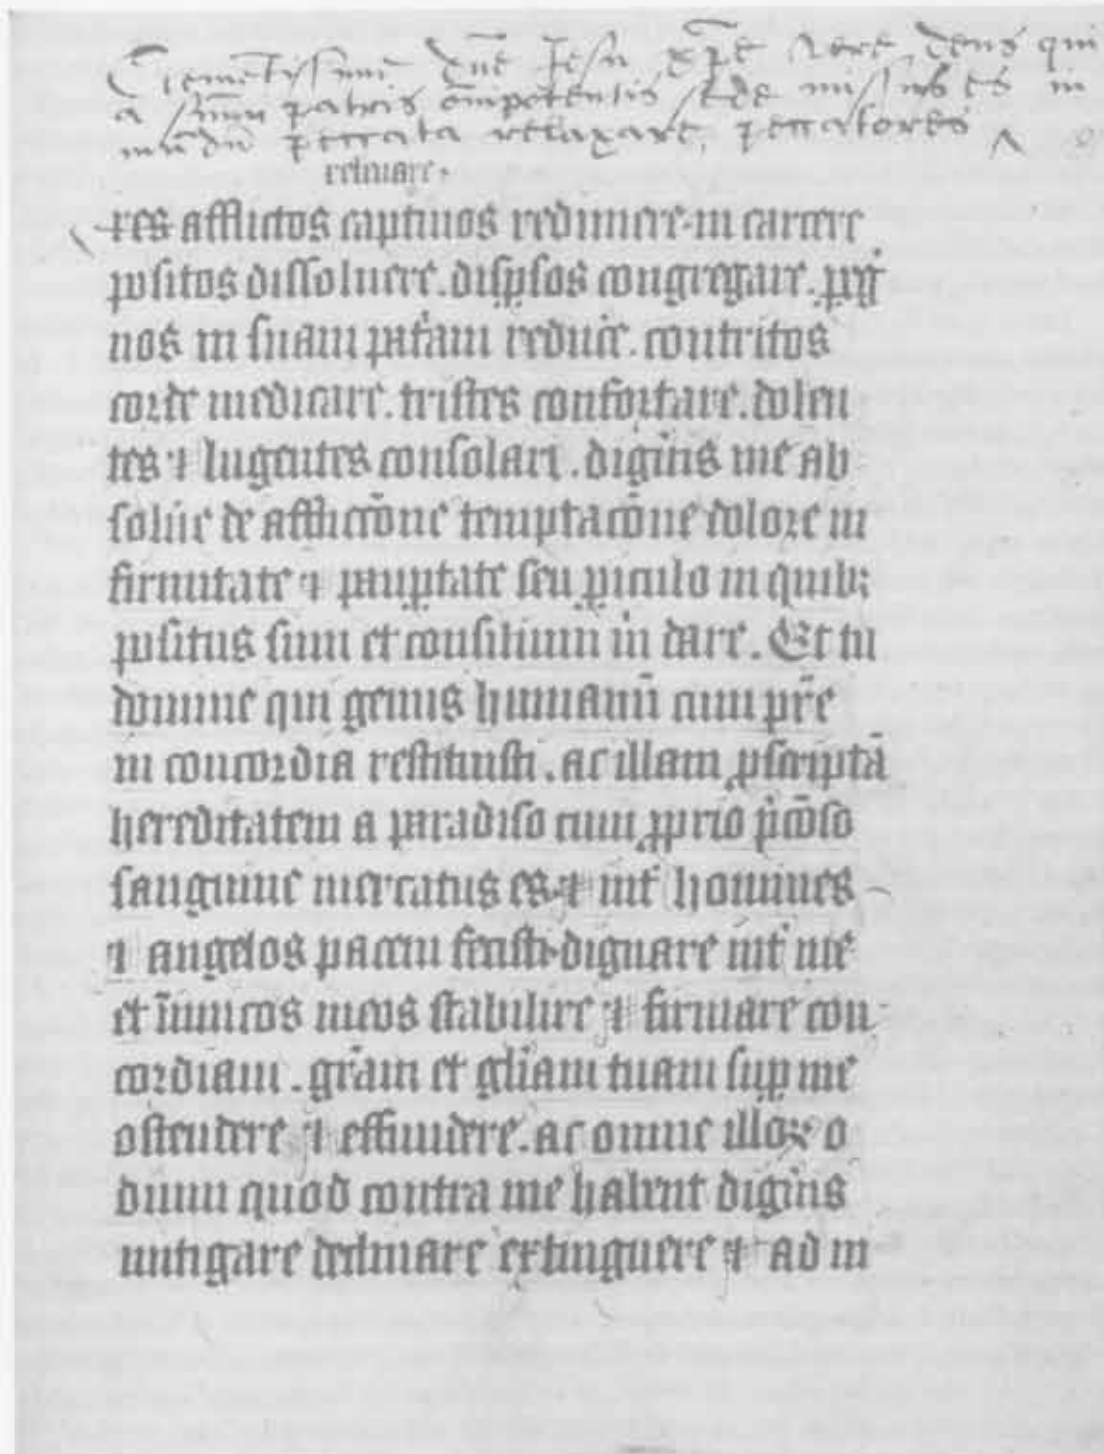 Clementissime dn̄e Jesu xp̄e vere deus qui
a summi patris om̄ipotentis sede missus es in
mūdū peccata relaxare, peccatores
relaxare.
res afflictos captiuos redimere·in carcere
positos dissoluere. disp̱sos congregare. peg̱ͥ
nos in suam pat̾am reduc̾e. contritos
corde medicare. tristes confortare. dolen
tes ⁊ lugentes consolari. dig̾ris me ab
solu̾e de affliccōne temptacōne dolore in
firmitate ⁊ paup̱tate seu p̱iculo in quibꝫ
positus sum et consilium m̾ dare. Et tu
domine qui genus humanū cum pr̄e
in concordia restituisti. ac illam ꝓscriptā
hereditatem a paradiso cum ꝓprio p̾cōso
sanguine mercatus es·⁊ int̾ homines
⁊ angelos pacem fecisti·dignare int̾ me
et īimicos meos stabilire ⁊ firmare con-
cordiam. gr̄am et gl̄iam tuam sup̱ me
ostendere ⁊ effundere. ac omne illoꝝ o
dium quod contra me habent dig̾ris
mitigare deliniare extinguere ⁊ ad in